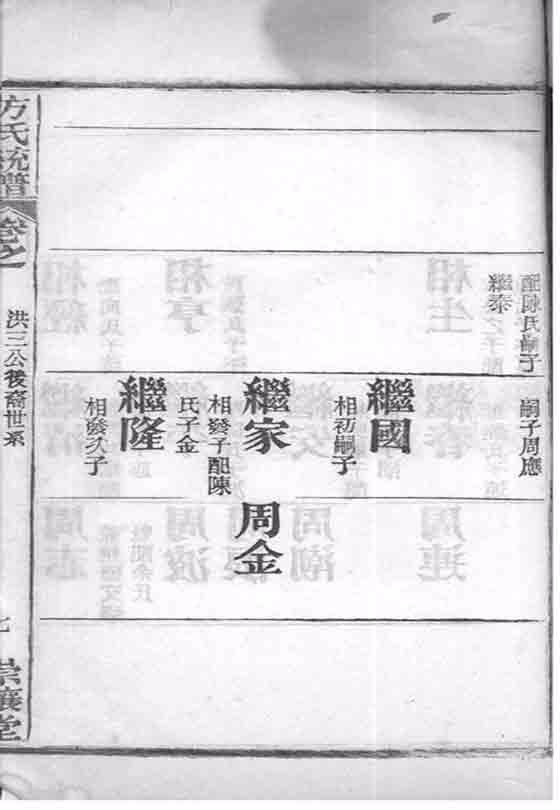 配陳氏嗣子
繼泰
嗣子周應
繼國
相初嗣子
繼家
相發子配陳
氏子金
周金
繼隆
相發次子
方氏統譜
卷之
洪三公後裔世系
七
崇讓堂